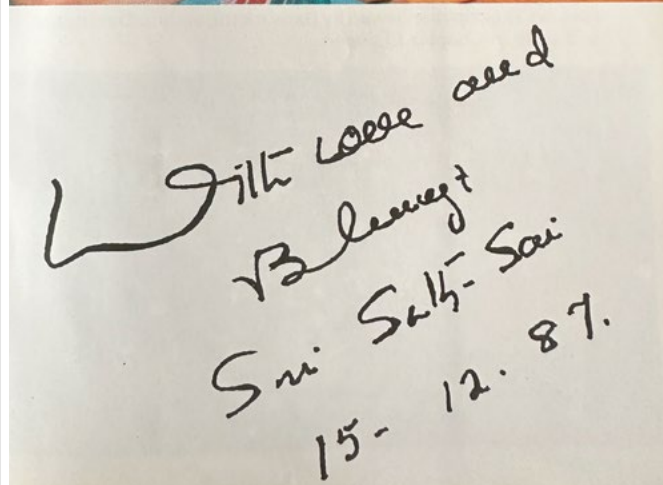 With Love and
Blessings
Sri Sathya Sai
15-12.87.